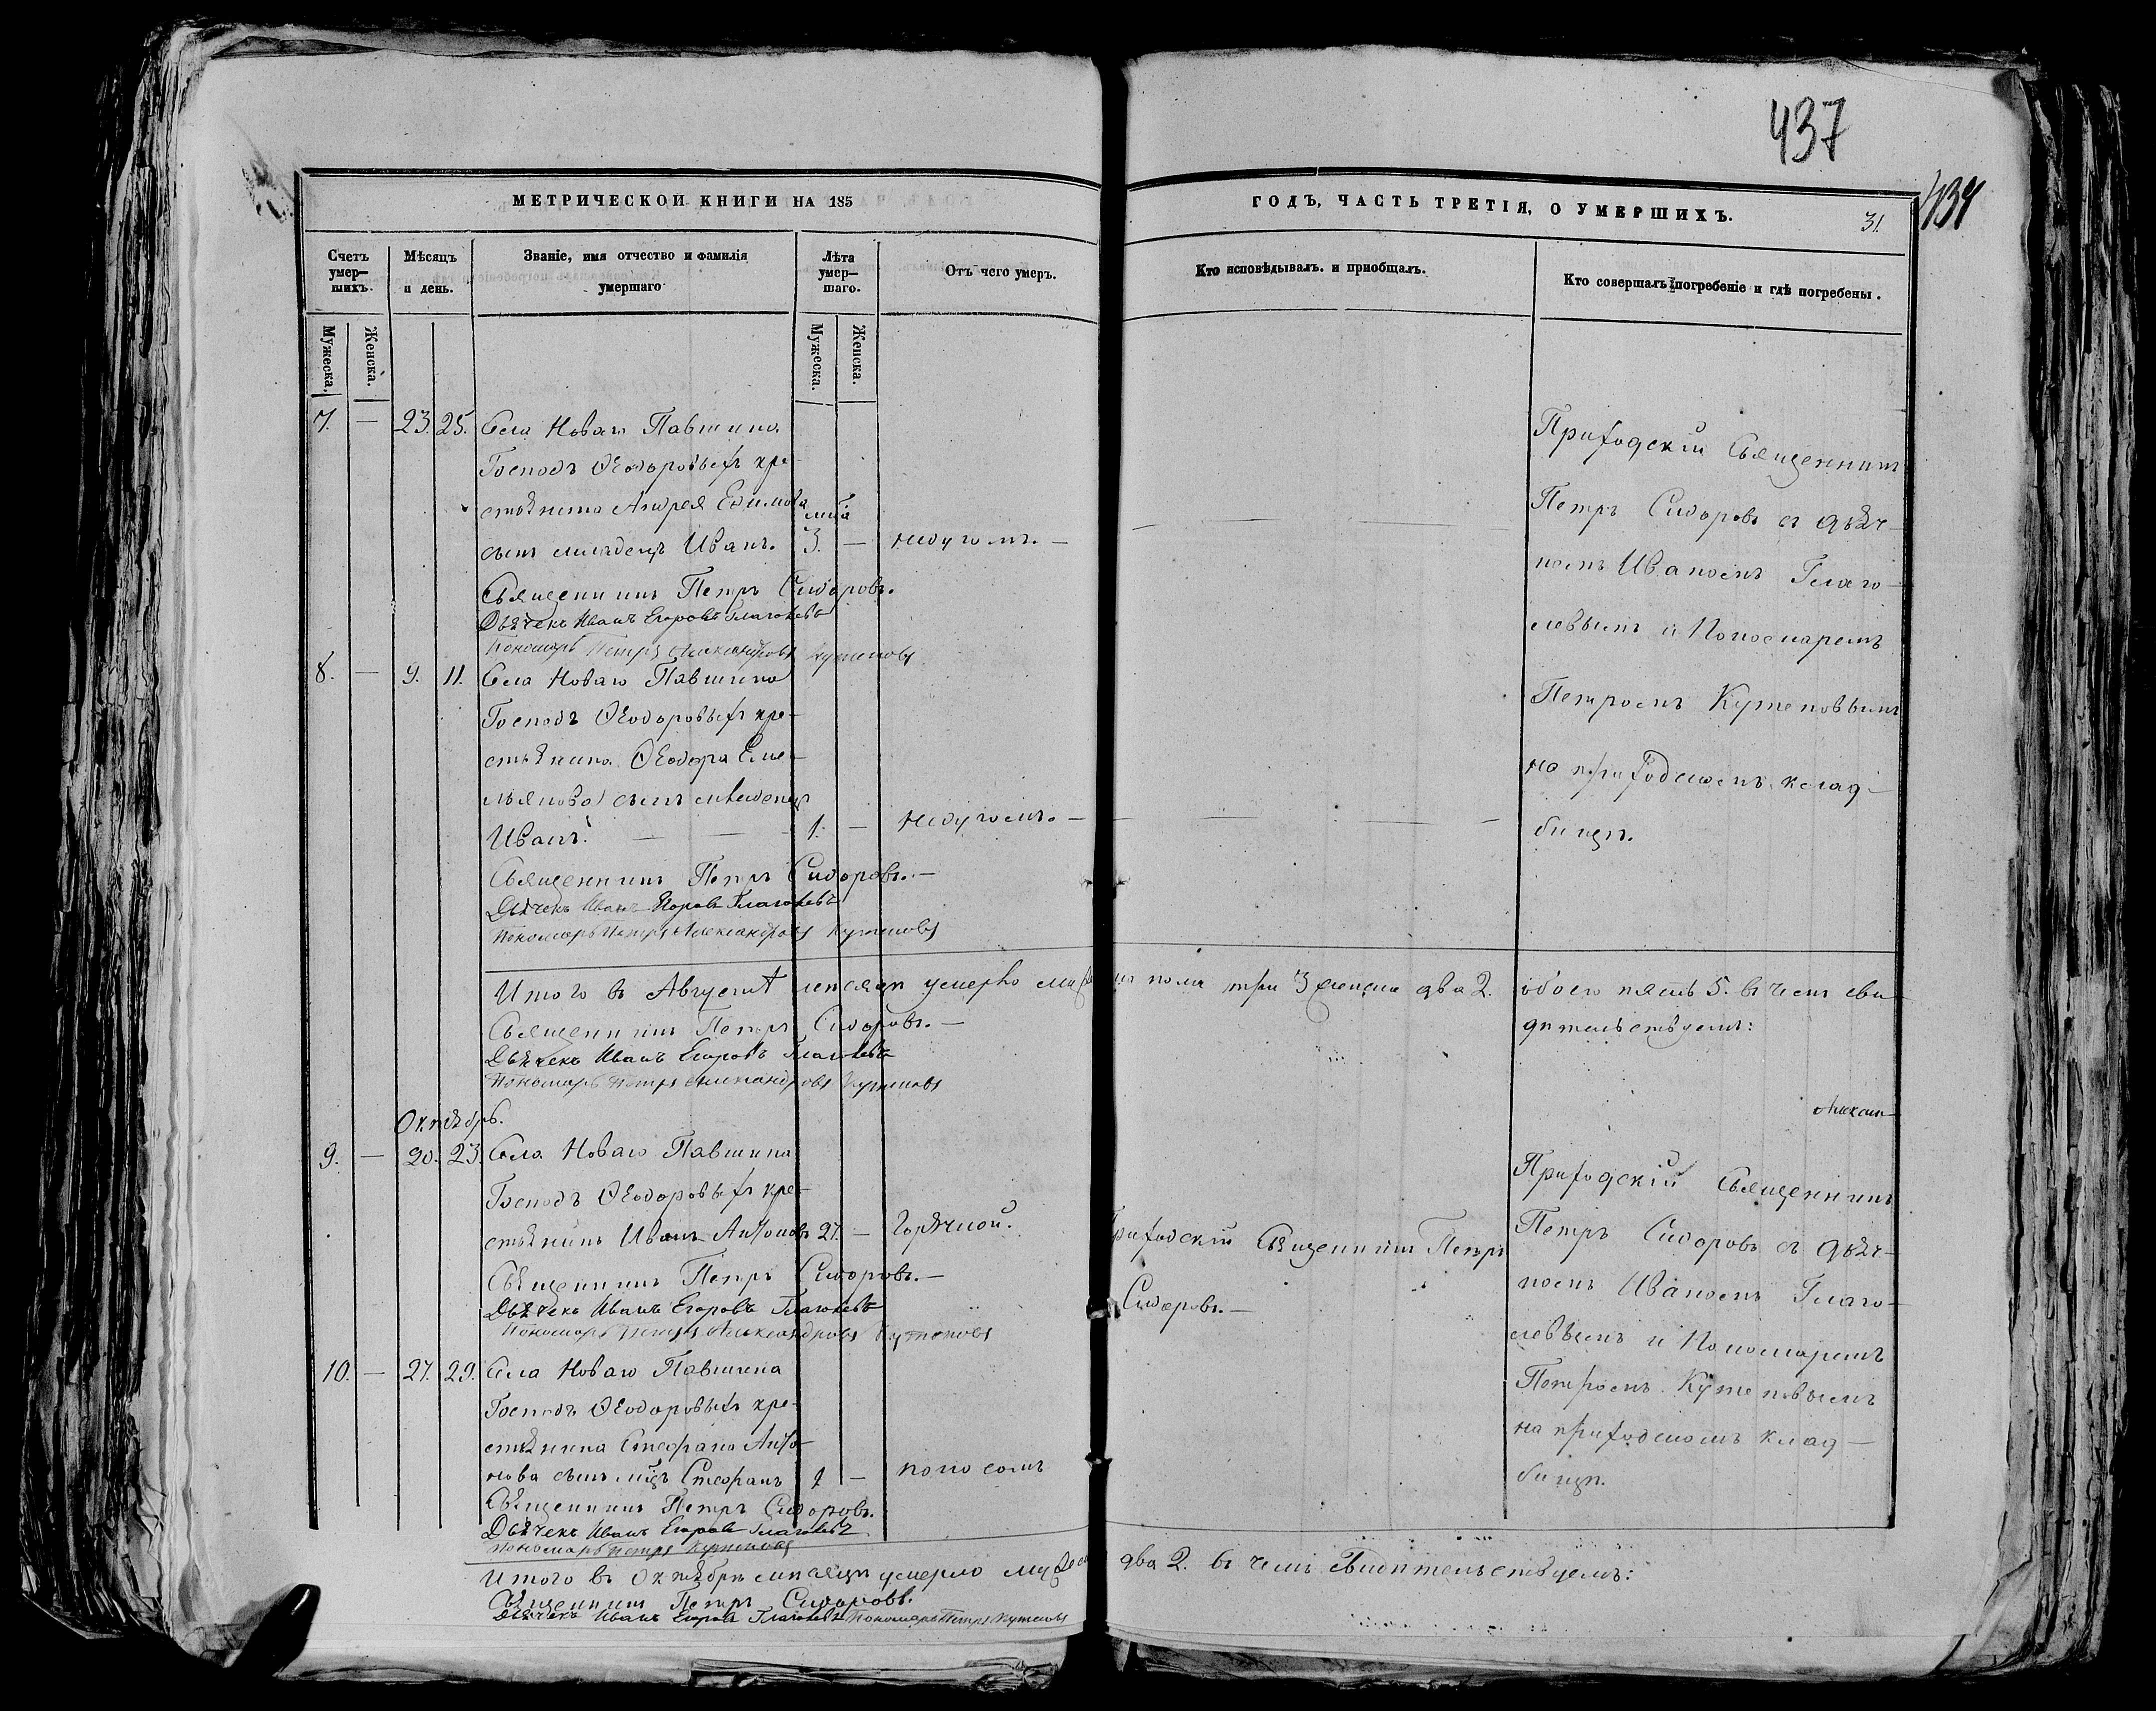 437
434
МЕТРИЧЕСКОЙ КНИГИ НА 185
ГОДЪ, ЧАСТЬ ТРЕТІЯ, О УМЕРШИХЪ.
31.
Счетъ умер-шихъ.
Мѣсяцъ и день.
Званіе, имя отчество и фамилія умершаго
Лѣта умер-шаго.
Отъ чего умеръ.
Кто исповѣдывалъ. и пріобщалъ.
Кто совершалъ погребеніе и гдѣ погребены.
Мужеска.
Женска.
Мужеска.
Женска.
7. — 23. 25. Села Новаго Павшина
Господъ Ѳеодоровыхъ кре-
стьянина Андрея Ефимова
сынъ младенецъ Иванъ. 3. — недугомъ. —
Священникъ Петръ Сидоровъ.
Дьячекъ Иванъ Егоровъ Глаголевъ
Пономарь Петръ Александровъ Кутеповъ
Приходскій Священникъ
Петръ Сидоровъ съ дьяч-
комъ Иваномъ Глаго-
левымъ и Пономаремъ
Петромъ Кутеповымъ
на приходскомъ клад-
бищѣ.
8. — 9. 11. Села Новаго Павшина
Господъ Ѳеодоровыхъ кре-
стьянина Ѳеодора Еме-
льянова сынъ младенецъ
Иванъ. — 1. — недугомъ. —
Священникъ Петръ Сидоровъ. —
Дьячекъ Иванъ Егоровъ Глаголевъ
Пономарь Петръ Александровъ Кутеповъ
Итого въ Августѣ мѣсяцѣ умерло мужеска пола три 3 женска два 2. обоего пять 5. въ чемъ сви-
дѣтельствуемъ:
Священникъ Петръ Сидоровъ. —
Дьячекъ Иванъ Егоровъ Глаголевъ
Пономарь Петръ Александровъ Кутеповъ
Октябрь.
9. — 20. 23. Села Новаго Павшина
Господъ Ѳеодоровыхъ кре-
стьянинъ Иванъ Антоновъ 27. — Горячкой.
Священникъ Петръ Сидоровъ. —
Дьячекъ Иванъ Егоровъ Глаголевъ
Пономарь Петръ Александровъ Кутеповъ
Приходскій Священникъ Петръ
Сидоровъ. —
Приходскій Священникъ
Петръ Сидоровъ съ дьяч-
комъ Иваномъ Глаго-
левымъ и Пономаремъ
Петромъ Кутеповымъ
на приходскомъ клад-
бищѣ.
10. — 27. 29. Села Новаго Павшина
Господъ Ѳеодоровыхъ кре-
стьянина Стефана Анто-
нова сынъ Стефанъ — поносомъ
Священникъ Петръ Сидоровъ.
Дьячекъ Иванъ Егоровъ Глаголевъ
Пономарь Петръ Кутеповъ
Итого въ Октябрѣ мѣсяцѣ умерло мужеска два 2. въ чемъ свидѣтельствуемъ:
Священникъ Петръ Сидоровъ.
Дьячекъ Иванъ Егоровъ Глаголевъ Пономарь Петръ Кутеповъ